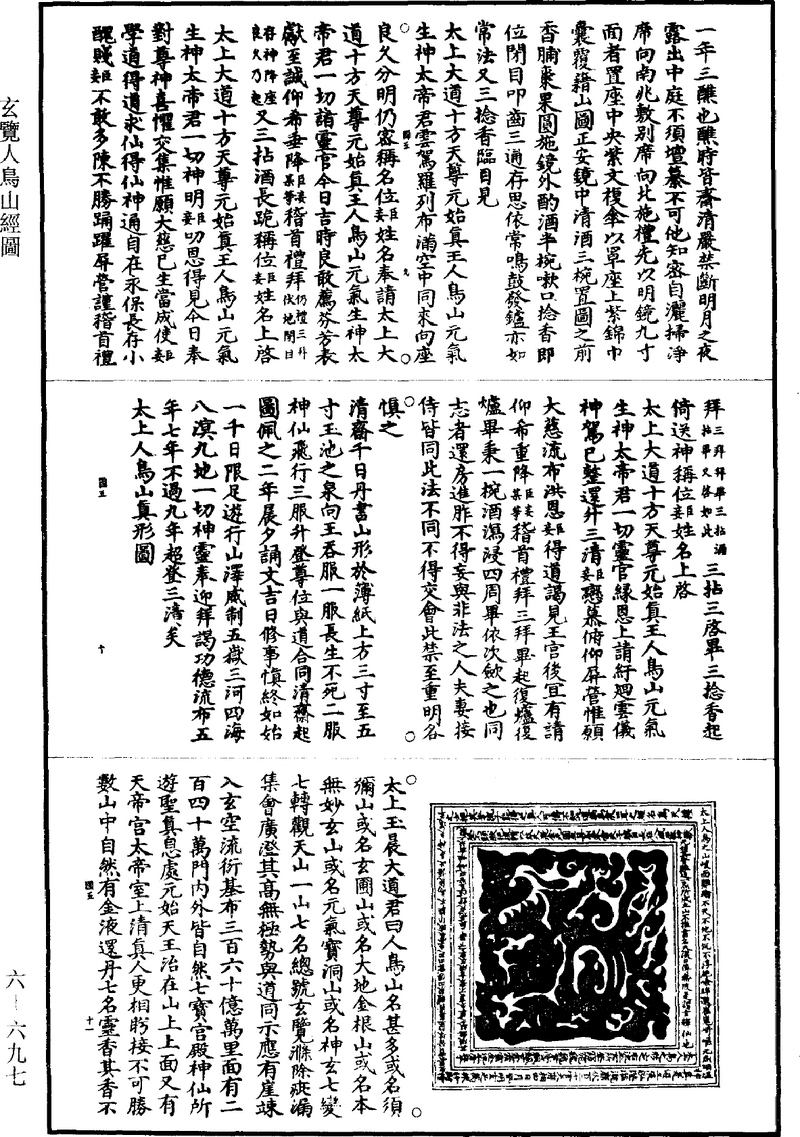 一年三醮也醮時皆齋清嚴禁斷明月之夜
露出中庭不須壇纂不可他知密自灑掃淨
席向南兆敷別席向北施禮先以明鏡九寸
面者置座中央紫文複傘以覃座上紫錦巾
囊覆藉山圖正安鏡中清酒三椀置圖之前
香脯棗果圓施鏡外酌酒半椀漱口捻香即
位閉目叩齒三通存思依常鳴鼓發鑪亦如
常法又三捻香臨目見
太上大道十方天尊元始真王人鳥山元氣
生神太帝君雲駕羅列布滿空中同來向座
良久分明仍密稱名位臣妾姓名奉請太上大
道十方天尊元始真王人鳥山元氣生神太
帝君一切諸靈官今日吉時良敢薦芬芳表
獻至誠仰希垂降臣妾某等稽首禮拜仍禮三拜伏地閉目
存神降座良久乃起又三拈酒長跪稱位臣妾姓名上啓
太上大道十方天尊元始真王人鳥山元氣
生神太帝君一切神明臣妾叨恩得見今日奉
對尊神喜懼交集惟願大慈已生當成使臣妾
學道得道求仙得仙神通自在永保長存小
醜賤臣妾不敢多陳不勝踊躍屏營謹稽首禮
拜三拜拜畢三拈酒拈畢又啓如此三拈三啓畢三捻香起
倚送神稱位臣妾姓名上啓
太上大道十方天尊元始真王人鳥山元氣
生神太帝君一切靈官緣恩上請紆迴雲儀
神駕已整還升三清臣妾戀慕俯仰屏營惟願
大慈流布洪恩臣妾得道謁見王宮後宜有請
仰希重降臣妾某等稽首禮拜三拜畢起復爐復
爐畢秉一椀酒瀉浸四周畢依次歛之也同
志者還房進胙不得妄與非法之人夫妻接
侍皆同此法不同不得交會此禁至重明各
慎之
清齋千日丹書山形於薄紙上方三寸至五
寸玉池之泉向王吞服一服長生不死二服
神仙飛行三服升登尊位與道合同清齋起
圖佩之二年晨夕誦文吉日修事慎終如始
一千日限足遊行山澤威制五嶽三河四海
八溟九地一切神靈奉迎拜謁功德流布五
年七年不過九年超登三清矣
太上人鳥山真形圖
太上玉晨大道君曰人鳥山名甚多或名須
彌山或名玄圃山或名大地金根山或名本
無妙玄山或名元氣寶洞山或名神玄七變
七轉觀天山一山七名總號玄覽滌除斑漏
集會廣澄其高無極勢與道同示應有崖竦
入玄空流衍基布三百六十億萬里面有二
百四十萬門內外皆自然七寶宮殿神仙所
遊聖真息處元始天王治在山上上面又有
天帝宮太帝室上清真人更相朌接不可勝
數山中自然有金液還丹七名靈香其香不
玄覽人鳥山經圖
六－六九七
圖五 九
圖五 十
圖五 十一